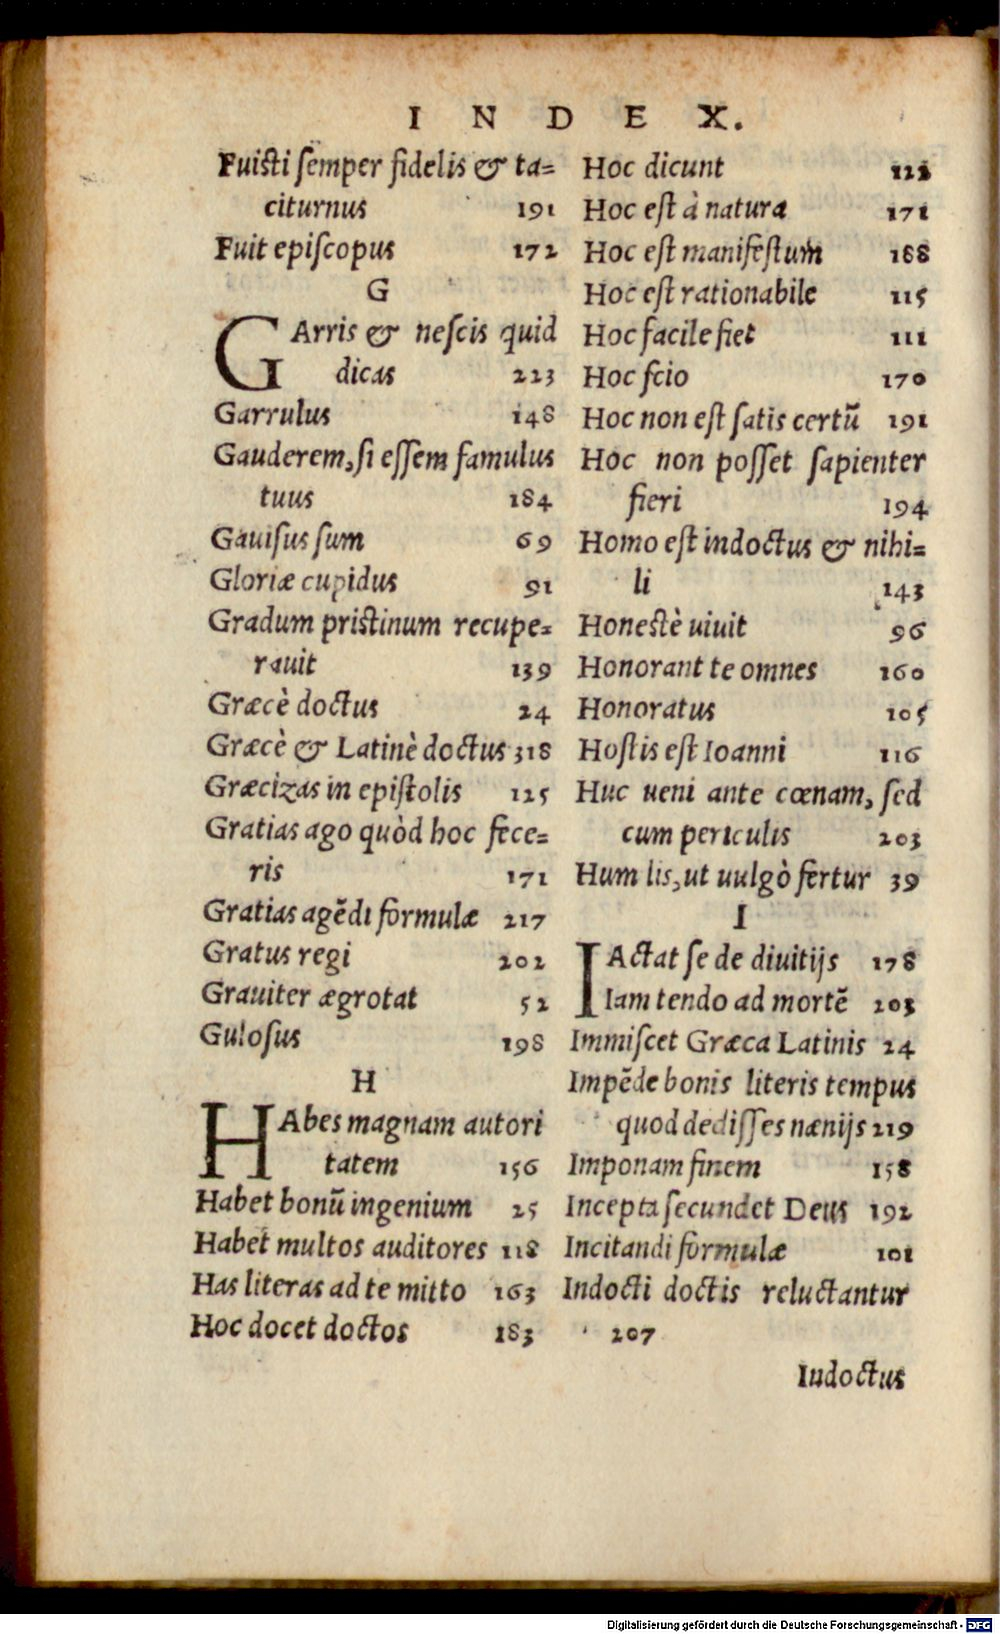 INDEX.
Fuisti semper fidelis & ta=
citurnus 191
Fuit episcopus 172
G
GArris & nescis quid
dicas 223
Garrulus 148
Gauderem, si essem famulus
tuus 184
Gauisus sum 69
Gloriæ cupidus 91
Gradum pristinum recupe=
rauit 139
Græcè doctus 24
Græcè & Latinè doctus 318
Græcizas in epistolis 125
Gratias ago quòd hoc fece=
ris 171
Gratias agēdi formulæ 217
Gratus regi 202
Grauiter ægrotat 52
Gulosus 198
H
HAbes magnam autori
tatem 156
Habet bonū ingenium 25
Habet multos auditores 118
Has literas ad te mitto 163
Hoc docet doctos 183
Hoc dicunt 122
Hoc est à natura 171
Hoc est manifestum 188
Hoc est rationabile 115
Hoc facile fiet 111
Hoc scio 170
Hoc non est satis certū 191
Hoc non posset sapienter
fieri 194
Homo est indoctus & nihi=
li 143
Honestè uiuit 96
Honorant te omnes 160
Honoratus 105
Hostis est Ioanni 116
Huc ueni ante cœnam, sed
cum periculis 203
Hum lis, ut uulgò fertur 39
I
IActat se de diuitijs 178
Iam tendo ad mortē 203
Immiscet Græca Latinis 24
Impēde bonis literis tempus
quod dedisses nænijs 219
Imponam finem 158
Incepta secundet Deus 192
Incitandi formulæ 101
Indocti doctis reluctantur
207
Iudoctus
Digitalisierung gefördert durch die Deutsche Forschungsgemeinschaft - DFG